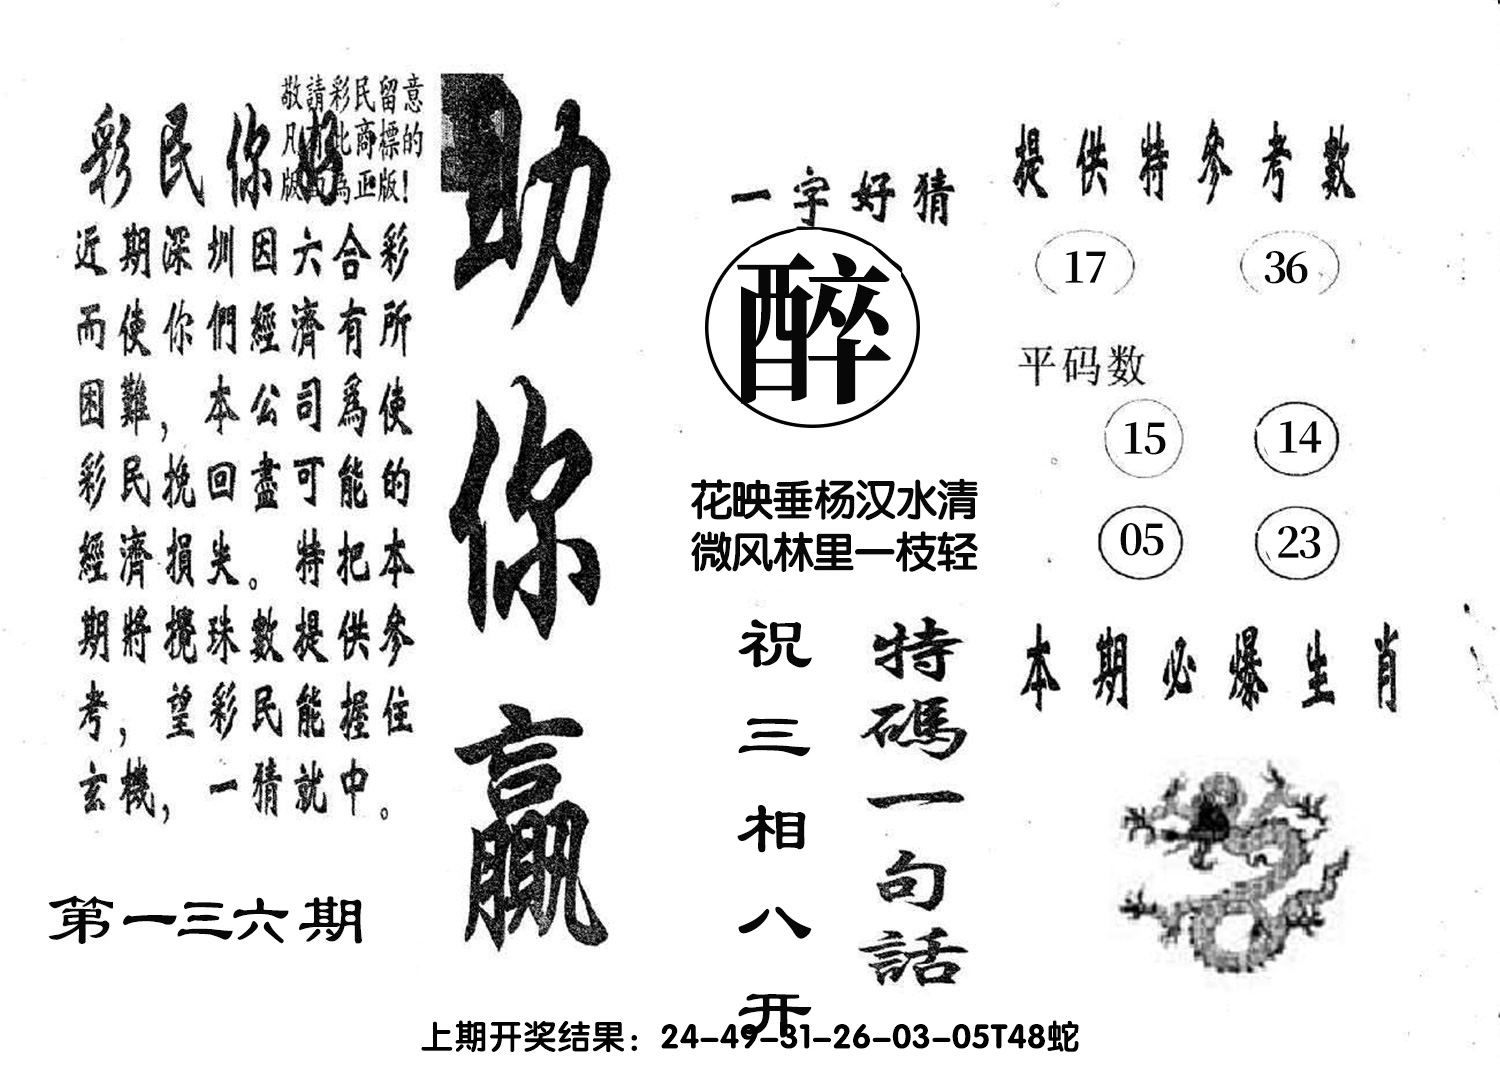 敬請彩民留意
凡有此商標的
版面為正版！
彩民你好
近期深圳因六合彩
而使你們經濟有所
困難，本公司爲使
彩民挽回盡可能的
經濟損失。特把本
期將攪珠數提供參
考，望彩民能握住
玄機，一猜就中。
第一三六期
助你贏
一字好猜
醉
花映垂杨汉水清
微风林里一枝轻
特碼一句話
祝三相八开
提供特參考數
17 36
平码数
15 14
05 23
本期必爆生肖
上期开奖结果：24-49-31-26-03-05T48蛇